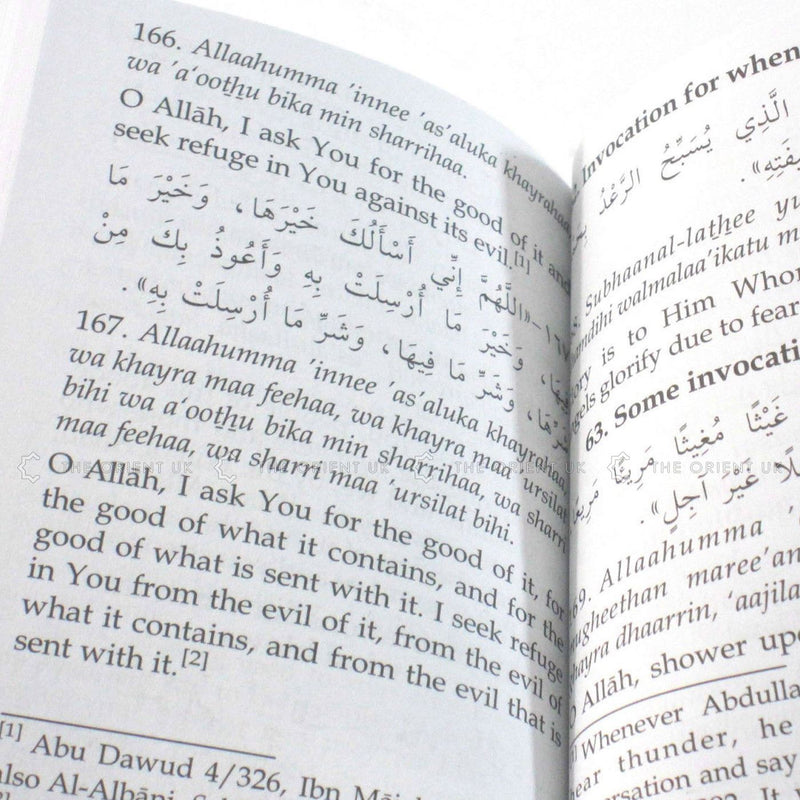 166. Allaahumma 'innee 'as'aluka khayrahaa
wa 'a'ootẖu bika min sharrihaa.
O Allāh, I ask You for the good of it and
seek refuge in You against its evil.[1]
١٦٧-«اللَّهُمَّ إِنِّي أَسْأَلُكَ خَيْرَهَا، وَخَيْرَ مَا
فِيهَا، وَخَيْرَ مَا أُرْسِلَتْ بِهِ وَأَعُوذُ بِكَ مِنْ
شَرِّهَا، وَشَرِّ مَا فِيهَا، وَشَرِّ مَا أُرْسِلَتْ بِهِ».
167. Allaahumma 'innee 'as'aluka khayrahaa,
wa khayra maa feehaa, wa khayra maa 'ursilat
bihi wa a'ootẖu bika min sharrihaa, wa sharri
maa feehaa, wa sharri maa 'ursilat bihi.
O Allāh, I ask You for the good of it, for
the good of what it contains, and for the
good of what is sent with it. I seek refuge
in You from the evil of it, from the evil of
what it contains, and from the evil that is
sent with it.[2]
[1] Abu Dawud 4/326, Ibn
also Al-Albāni,
Invocation for when
الَّذِي يُسَبِّحُ الرَّعْدُ
Subhaanal-latẖee
walmalaa'ikatu
is to Him Whom
glorify due to fear
63. Some
غَيْثًا مُغِيثًا مَرِيئًا
غَيْرَ آجِلٍ».
Allaahumma
maree'an
dhaarrin, 'aajila
O Allāh, shower
Whenever
hear thunder, he
and say
THE ORIENT UK THE ORIENT UK THE ORIENT UK THE ORIENT UK